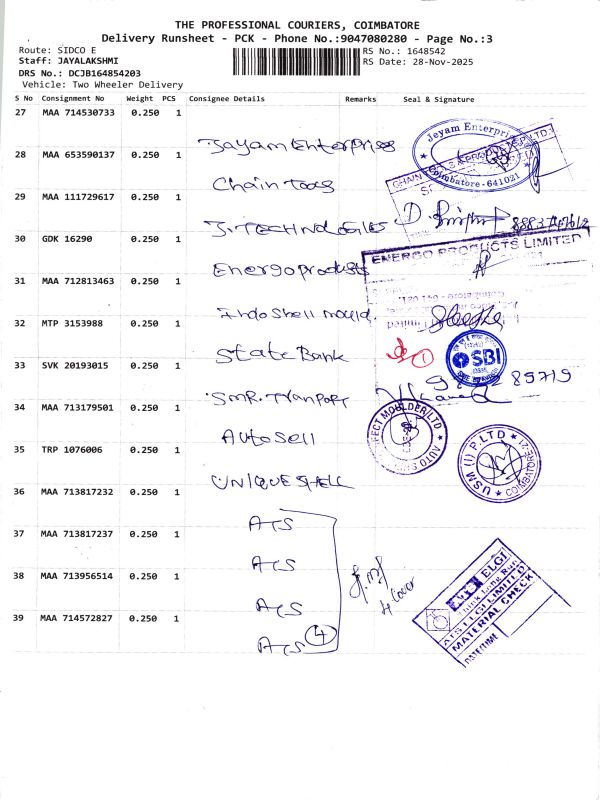 THE PROFESSIONAL COURIERS, COIMBATORE
Delivery Runsheet - PCK - Phone No.:9047080280 - Page No.:3
Route: SIDCO E
RS No.: 1648542
Staff: JAYALAKSHMI
RS Date: 28-Nov-2025
DRS No.: DCJB164854203
Vehicle: Two Wheeler Delivery
S No Consignment No Weight PCS Consignee Details Remarks Seal & Signature
27 MAA 714530733 0.250 1
Jayam Enterprises
Jeyam Enterpri
Coimbatore - 641021
28 MAA 653590137 0.250 1
Chain Tools
CHAIN
29 MAA 111729617 0.250 1
J. TECHNOLOGIES
30 GDK 16290 0.250 1
Energo products
ENERGO PRODUCTS LIMITED
31 MAA 712813463 0.250 1
Indo Shell mould.
32 MTP 3153988 0.250 1
State Bank
1
SBI
33 SVK 20193015 0.250 1
SMR. Tranport
85719
34 MAA 713179501 0.250 1
Autosell
FECT MOULDER LTD
AUTO
35 TRP 1076006 0.250 1
UNIQUE SHELL
USM (I) P.LTD
COIMBATORE-21
36 MAA 713817232 0.250 1
ATS
37 MAA 713817237 0.250 1
ATS
38 MAA 713956514 0.250 1
ATS
4 Cover
39 MAA 714572827 0.250 1
ATS
4
ELGI
ATS ELGI LIMITED
MATERIAL CHECK
DATE/TIME